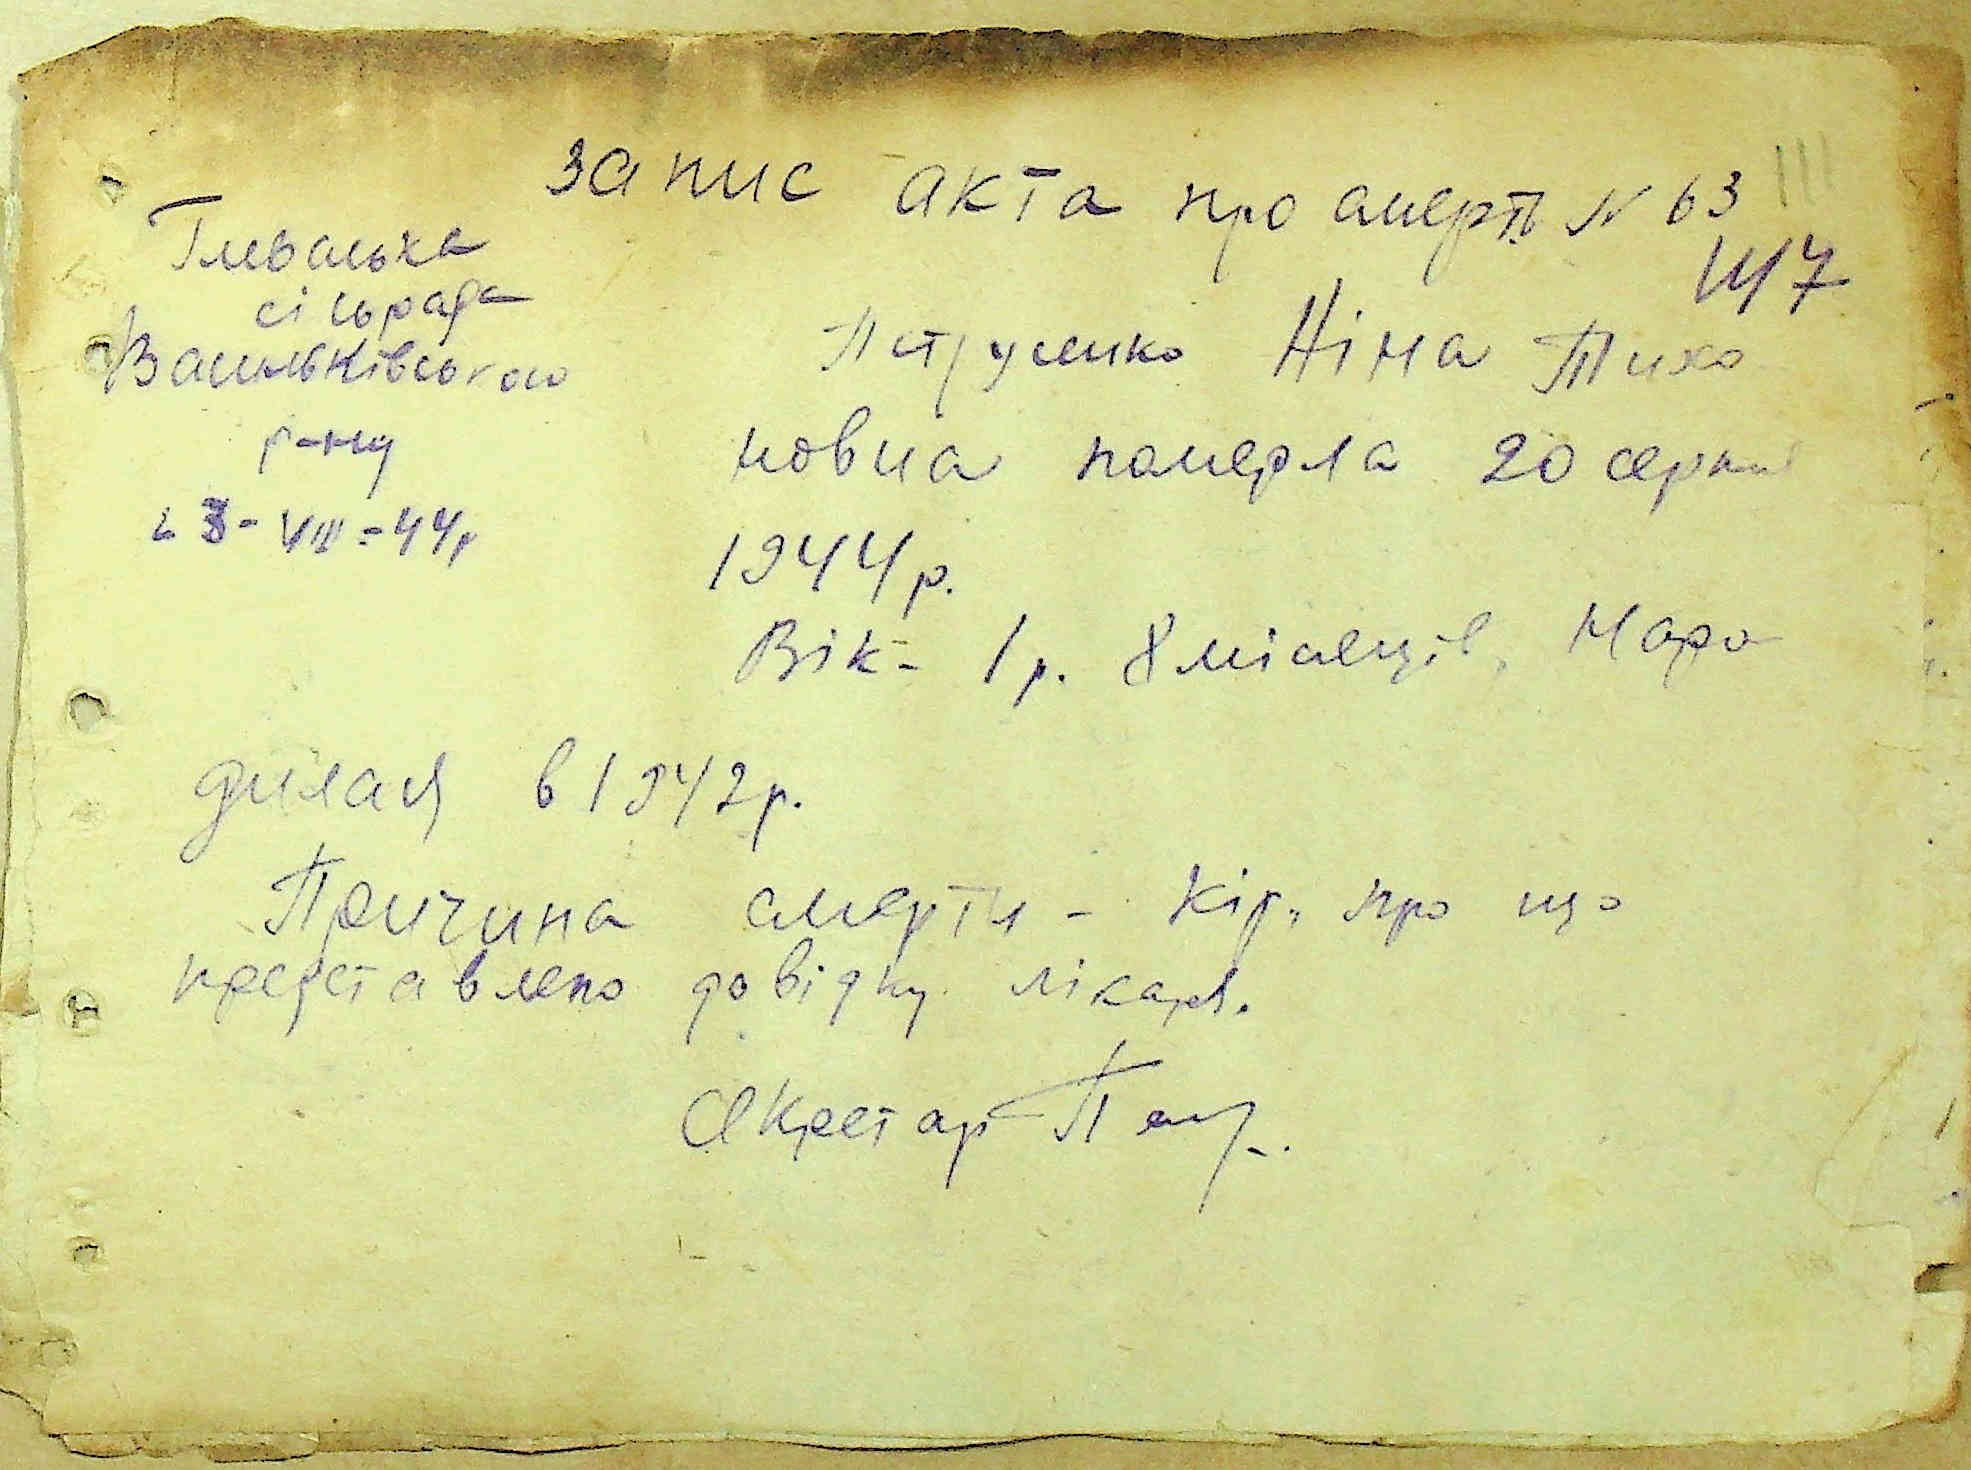 Запис акта про смерть N 63
Ш/7
Глеваська
сільрада
Васильківського
р-ну
23-VIII-44р
Петруленко Ніна Тихо
новна померла 20 серпня
1944р.
Вік- 1р. 8 місяців, Наро
дилася в 1942р.
Причина смерти - Кір, про що
представлено довідку лікаря.
Секретар